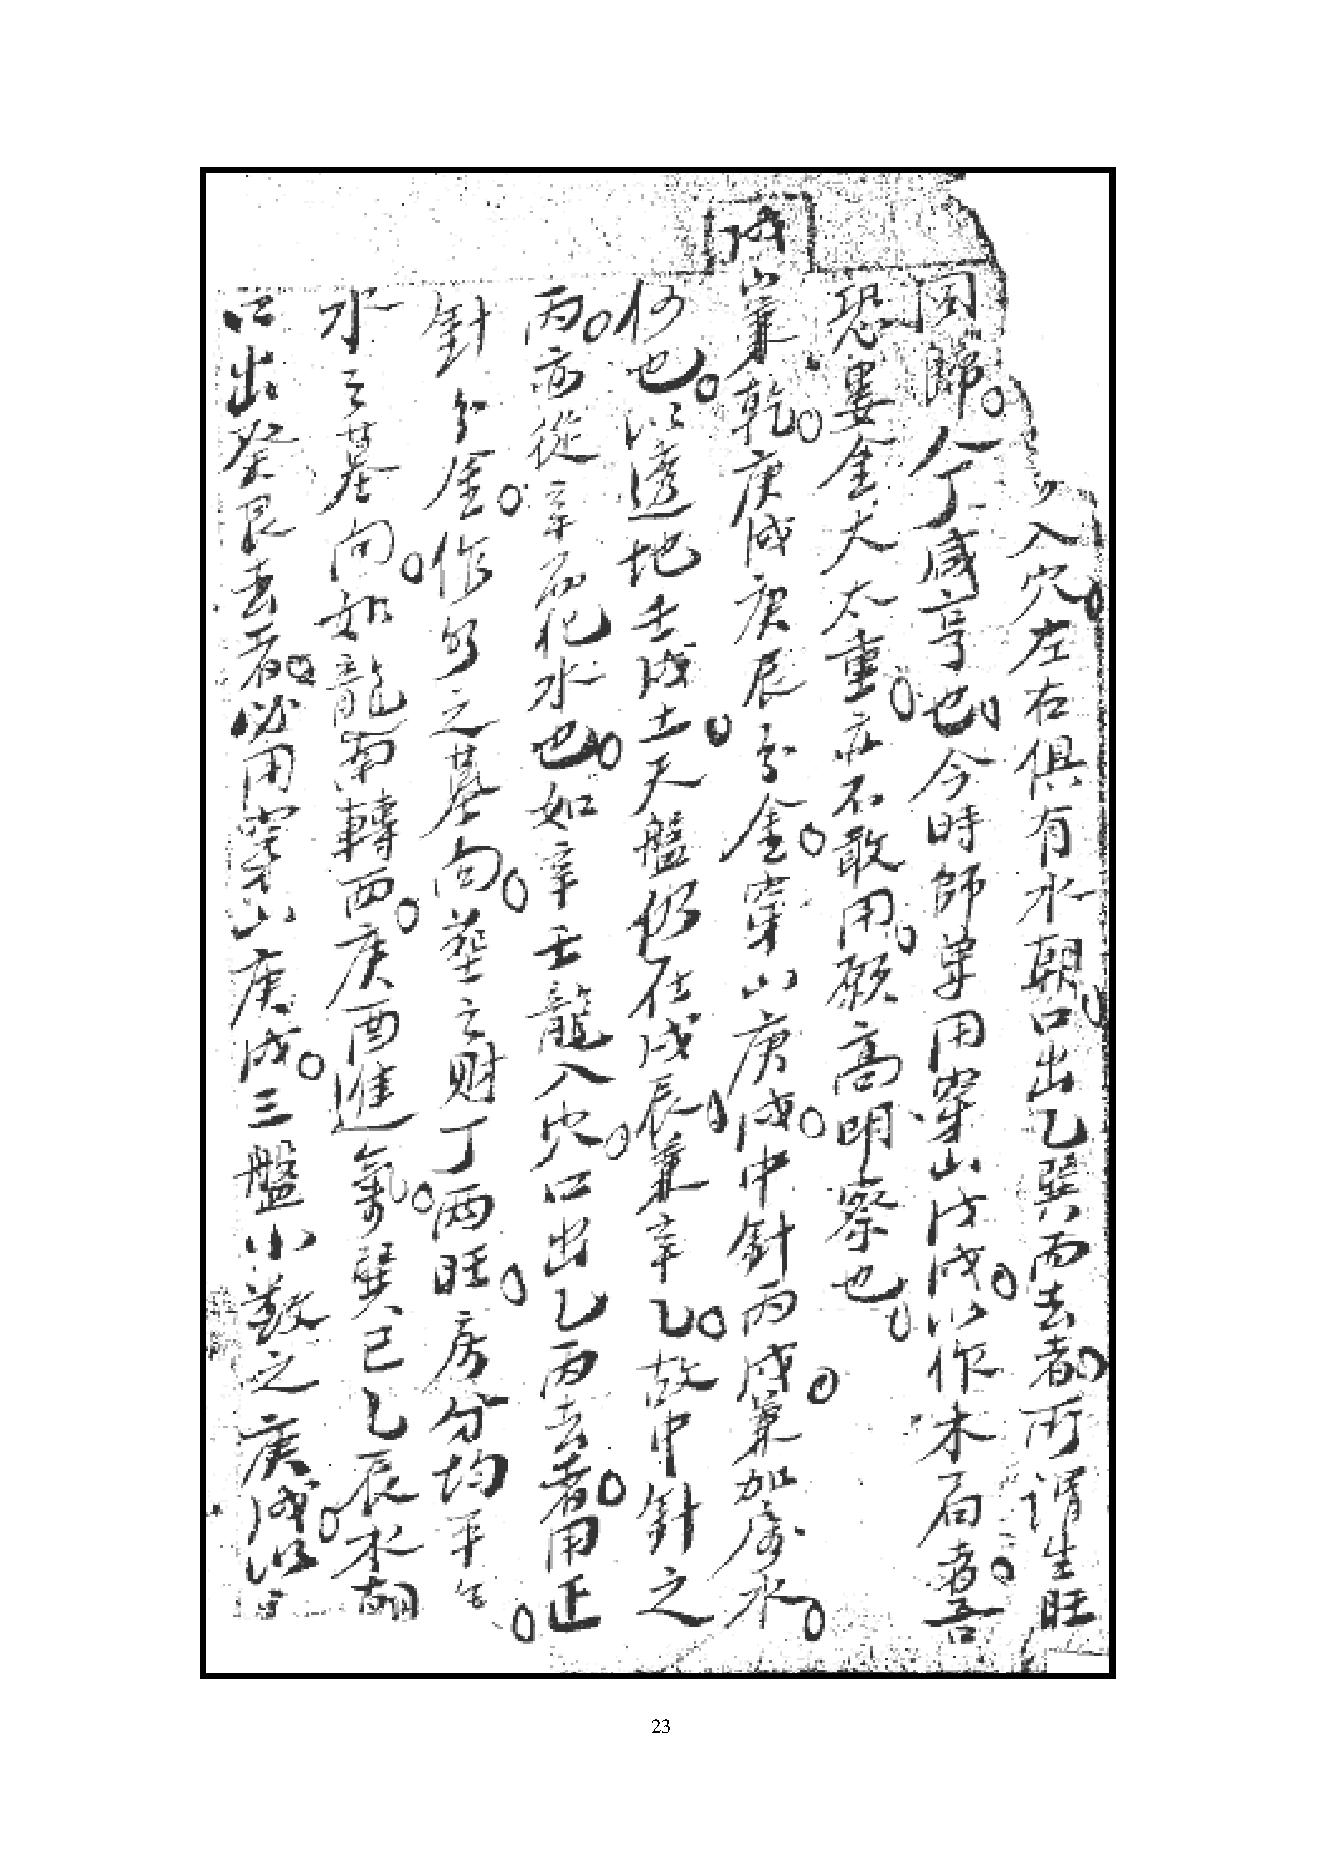 入穴左右俱有水朝口出乙巽丙去者所谓生旺
同歸个丁咸亨也今時師单用穿山戊戌以作木局者吾
恐婁金犬太重亦不敢用願高明察也
戌山兼乾庚戌庚辰分金穿山庚戌中針丙戌兼加癸水
何也以透地壬戌土天盤仍在戌辰兼辛乙故中針之
丙亦從辛而化水也如辛壬龍入穴口出乙丙去者用正
針分金作的之墓向塟之财丁两旺房分均平
水之墓向如龍南轉西庚酉進氣巽巳乙辰水朝
口出癸艮去者必用穿山庚戌三盤小数之庚戌以
23